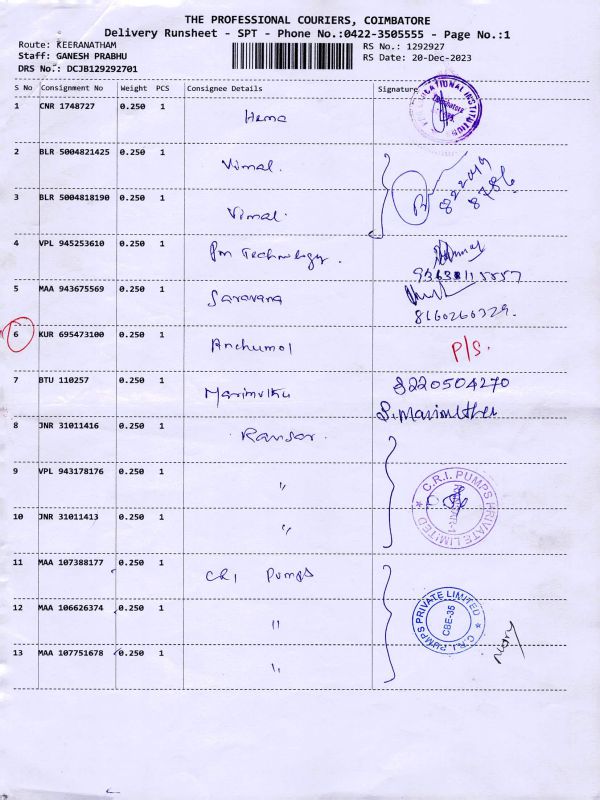 THE PROFESSIONAL COURIERS, COIMBATORE
Delivery Runsheet - SPT - Phone No.:0422-3505555 - Page No.:1
Route: KEERANATHAM
Staff: GANESH PRABHU
DRS No.: DCJB129292701
RS No.: 1292927
RS Date: 20-Dec-2023
S No Consignment No Weight PCS Consignee Details Signature
1 CNR 1748727 0.250 1 Hema
2 BLR 5004821425 0.250 1 Vimal.
3 BLR 5004818190 0.250 1 Vimal.
4 VPL 945253610 0.250 1 Pm Technology.
5 MAA 943675569 0.250 1 Saravana
8160260329.
6 KUR 695473100 0.250 1 Anchumol P/S.
7 BTU 110257 0.250 1 Marimuthu 8220504270
S. Marimuthu
8 JNR 31011416 0.250 1 Ransar.
9 VPL 943178176 0.250 1 "
10 JNR 31011413 0.250 1 "
C.R.I. PUMPS PRIVATE LIMITED
11 MAA 107388177 0.250 1 CRI Pumps
12 MAA 106626374 0.250 1 "
C.R.I. PUMPS PRIVATE LIMITED
CBE-35
13 MAA 107751678 0.250 1 "